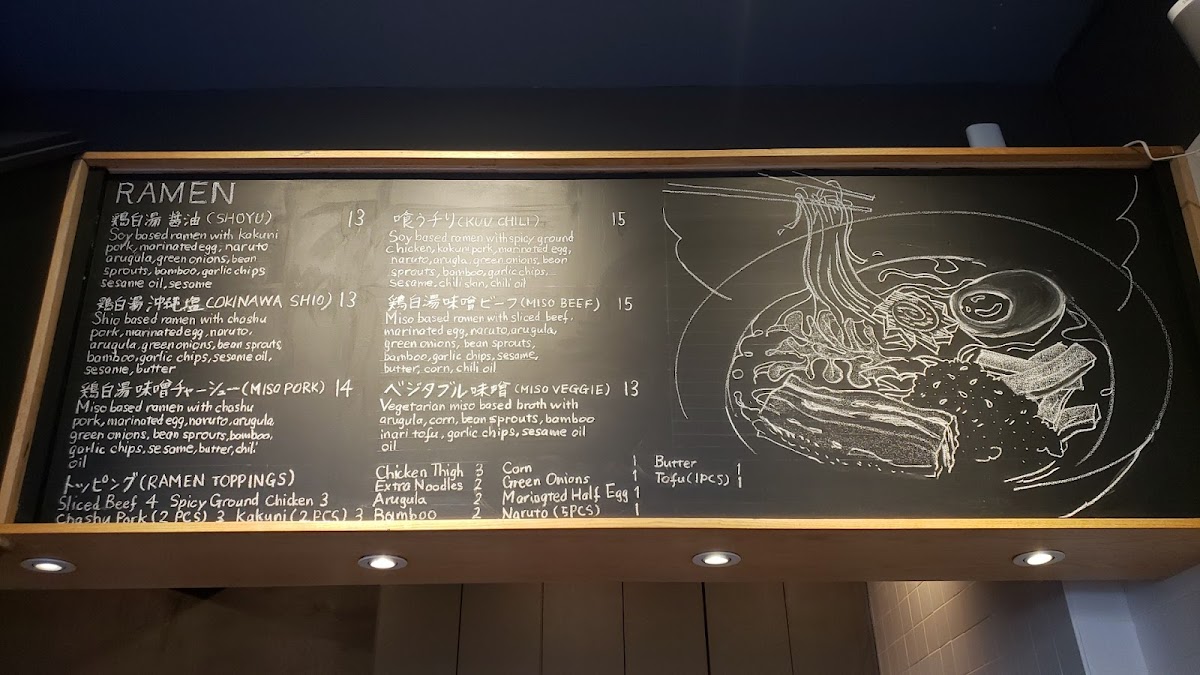 RAMEN
鶏白湯 醤油 (SHOYU) 13
Soy based ramen with kakuni
pork, marinated egg, naruto
arugula, green onions, bean
sprouts, bamboo, garlic chips
sesame oil, sesame
鶏白湯 沖縄塩 (OKINAWA SHIO) 13
Shio based ramen with chashu
pork, marinated egg, naruto.
arugula, green onions, bean sprouts
bamboo, garlic chips, sesame oil,
sesame, butter
鶏白湯 味噌チャーシュー (MISO PORK) 14
Miso based ramen with chashu
pork, marinated egg, naruto, arugula
green onions, bean sprouts, bamboo,
garlic chips, sesame, butter, chili
oil
喰うチリ (KUU CHILI) 15
Soy based ramen with spicy ground
chicken, kakuni pork, marinated egg,
naruto, arugla, green onions, bean
sprouts, bamboo, garlic chips,
sesame, chili skin, chili oil
鶏白湯味噌ビーフ (MISO BEEF) 15
Miso based ramen with sliced beef.
marinated egg, naruto, arugula,
green onions, bean sprouts,
bamboo, garlic chips, sesame,
butter, corn, chili oil
ベジタブル味噌 (MISO VEGGIE) 13
Vegetarian miso based broth with
arugula, corn, bean sprouts, bamboo
inari tofu, garlic chips, sesame oil
oil
トッピング (RAMEN TOPPINGS)
Sliced Beef 4 Spicy Ground Chicken 3
Chashu Pork (2 PCS) 3 Kakuni (2 PCS) 3
Chicken Thigh 3
Extra Noodles 2
Arugula 2
Bamboo 2
Corn 1
Green Onions 1
Marinated Half Egg 1
Naruto (5PCS) 1
Butter 1
Tofu (1PCS) 1